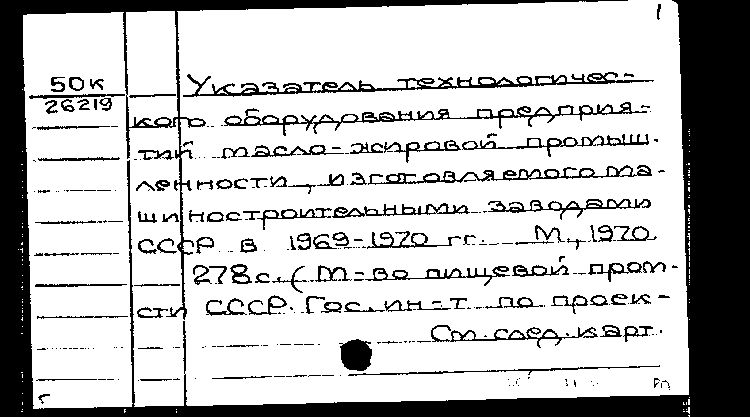 1
50к
26219
Указатель технологичес-
кого оборудования предприя-
тий масло-жировой промыш.
ленности, изготовляемого ма-
шиностроительными заводами
СССР в 1969-1970 гг. М., 1970.
278с. (М-во пищевой пром-
сти СССР. Гос. ин-т по проек-
См. след. карт.
г
Рп